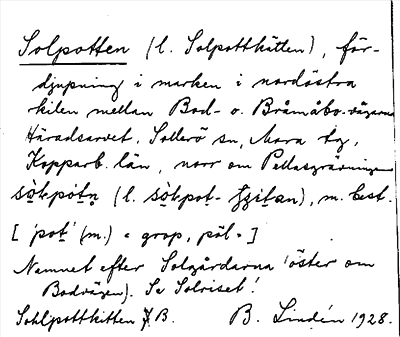 Solpotten (l. Solpottkitten), för-
djupning i marken i nordöstra
kilen mellan Bod- o. Bråmåbo-vägarna
Häradsarvet, Sollerö sn, Mora tg,
Kopparb. län, norr om Pellasgrävningen
sōkpotn (l. sōkpot-), m. best.
[ ˈpotˈ (m.) = grop, pöl. ]
Namnet efter Solgårdarna (öster om
Bodvägen). Se Solriset!
Sohlpottkitten J. B. B. Lindén 1928.